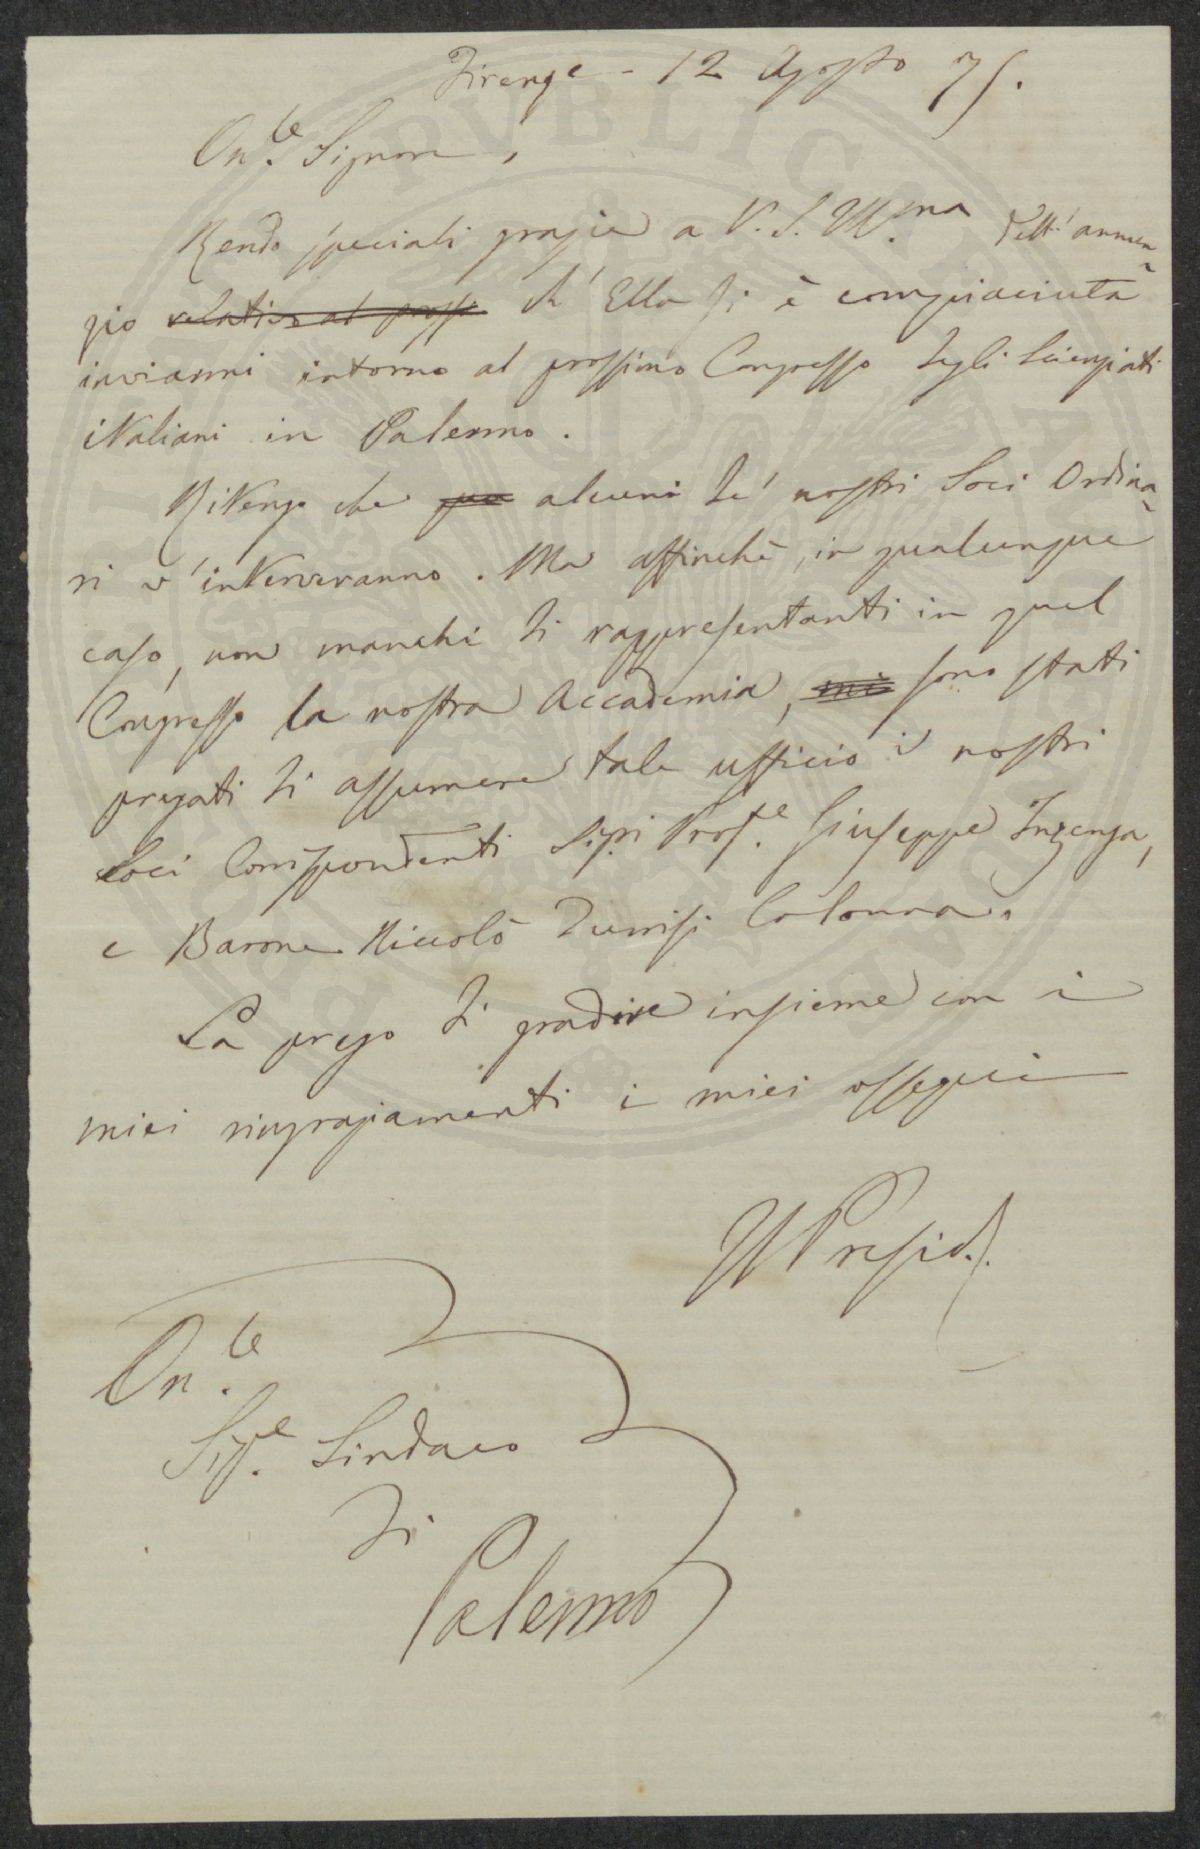 Firenze - 12 Agosto 75.
On.le Signore,
Rendo speciali grazie a V. S. Ill.ma dell'annun=
zio relativo al pross ch'Ella si è compiaciuta
inviarmi intorno al prossimo Congresso degli Scienziati
italiani in Palermo.
Ritengo che alcuni de' nostri Soci Ordina=
ri v'interverranno. Ma affinchè, in qualunque
caso, non manchi di rappresentanti in quel
Congresso la nostra Accademia, mi sono stati
pregati di assumere tale ufficio i nostri
Soci Corrispondenti Sigri Prof.e Giuseppe Inzenga,
e Barone Niccolò Turrisi Colonna.
La prego di gradire insieme con i
miei ringraziamenti i miei ossequi
Il Presid.
On.le
Sig.e Sindaco
di
Palermo